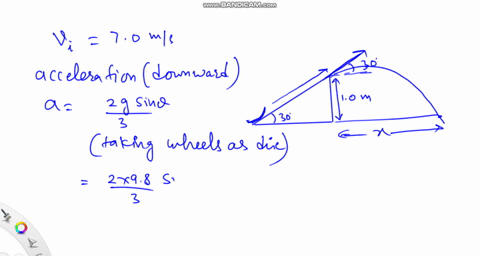 www.BANDICAM.com
Vi = 7.0 m/s
acceleration (downward)
a = 2g sinθ / 3
(taking wheels as disc)
= 2×9.8 S / 3
30°
30°
1.0 m
x